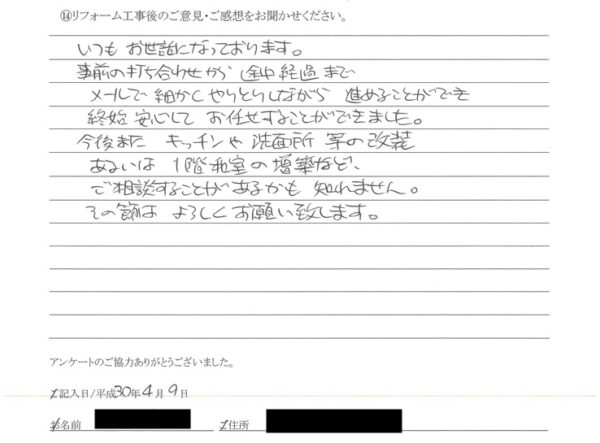 ⑭リフォーム工事後のご意見・ご感想をお聞かせください。
いつも お世話になっております。
事前の打ち合わせから 途中経過まで
メールで 細かくやりとりしながら 進めることができ
終始 安心して お任せすることができました。
今後また キッチンや 洗面所 等の改装
あるいは 1階和室の増築など、
ご相談することがあるかも 知れません。
その節は よろしく お願い致します。
アンケートのご協力ありがとうございました。
記入日/平成30年4月9日
お名前 ご住所